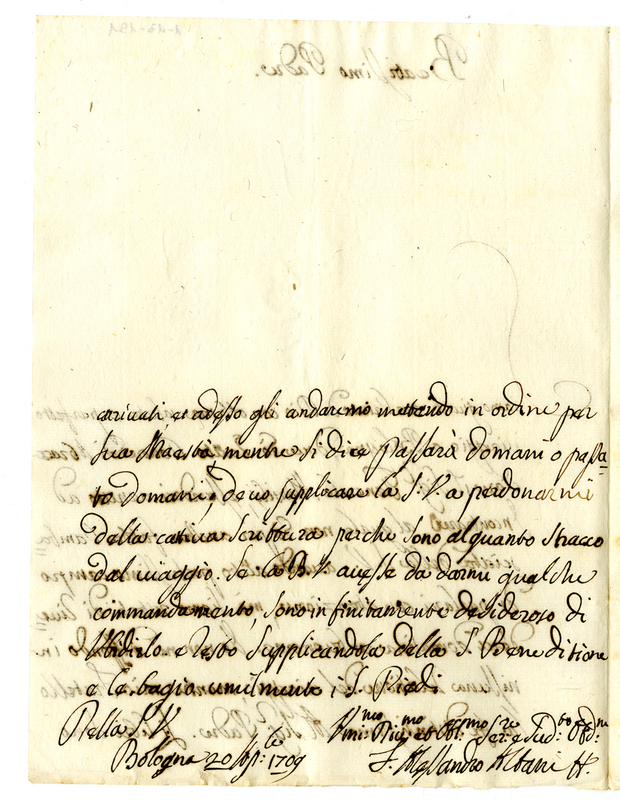 arrivati et adesso gli andaremo mettendo in ordine per
sua Maestà, mentre si dice passarà domani o passa=
to domani; devo supplicare la S. V. a perdonarmi
della cativa scrittura perche sono alquanto stracco
dal viaggio. Se la B. V. avesse da darmi qualche
commandamento, sono infinitamente desideroso di
Ubidirlo. e resto supplicandola della S. Beneditione
e le bagio umilmente i S. Piedi
Della S. V.
Umi:mo Div:mo et Obl:mo Ser:re e Sud:to
Bologna 20 1709
F. Alessandro Albani